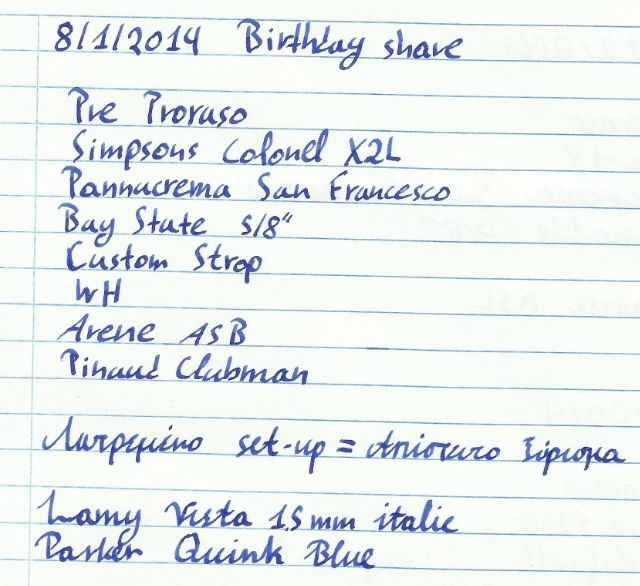 8/1/2014 Birthday shave
Pre Proraso
Simpsons Colonel X2L
Pannacrema San Francesco
Bay State 5/8"
Custom Strop
WH
Avene ASB
Pinaud Clubman
Λατρεμένο set-up = Απίστευτο Ξύρισμα
Lamy Vista 1.5 mm italic
Parker Quink Blue